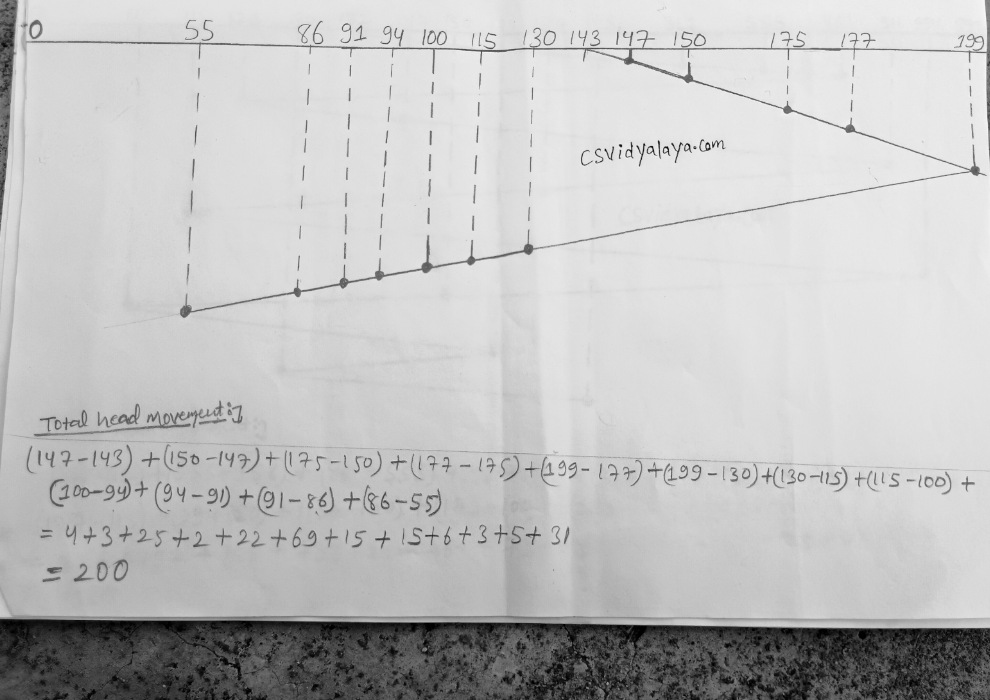 0 55 86 91 94 100 115 130 143 147 150 175 177 199
CSVidyalaya.com
Total head movement:
(147-143) + (150-147) + (175-150) + (177-175) + (199-177) + (199-130) + (130-115) + (115-100) +
(100-94) + (94-91) + (91-86) + (86-55)
= 4+3+25+2+22+69+15+15+6+3+5+31
= 200